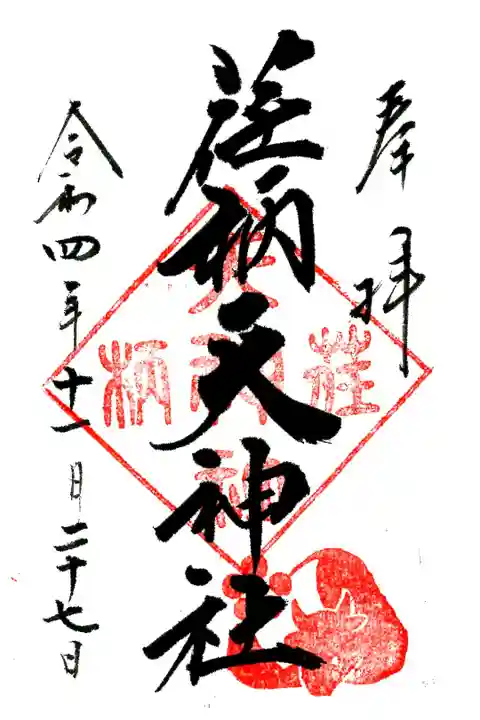 奉拝
荏柄天神社
令和四年十一月二十七日